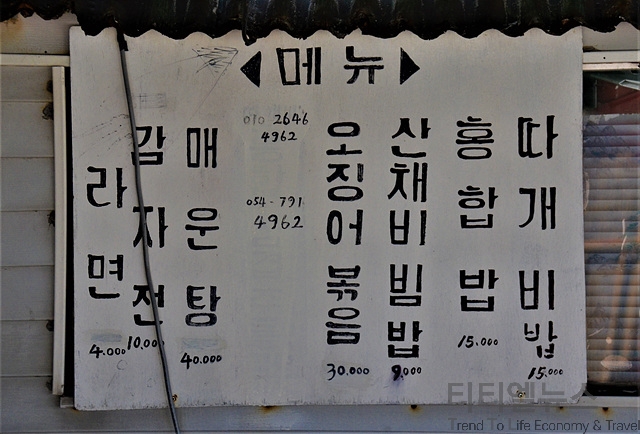 ◀메뉴▶
따개비밥
15.000
홍합밥
15.000
산채비빔밥
9.000
오징어볶음
30.000
010 2646
4962
054-791
4962
매운탕
40.000
감자전
10.000
라면
4.000
티티엘뉴스
Trend To Life Economy & Travel